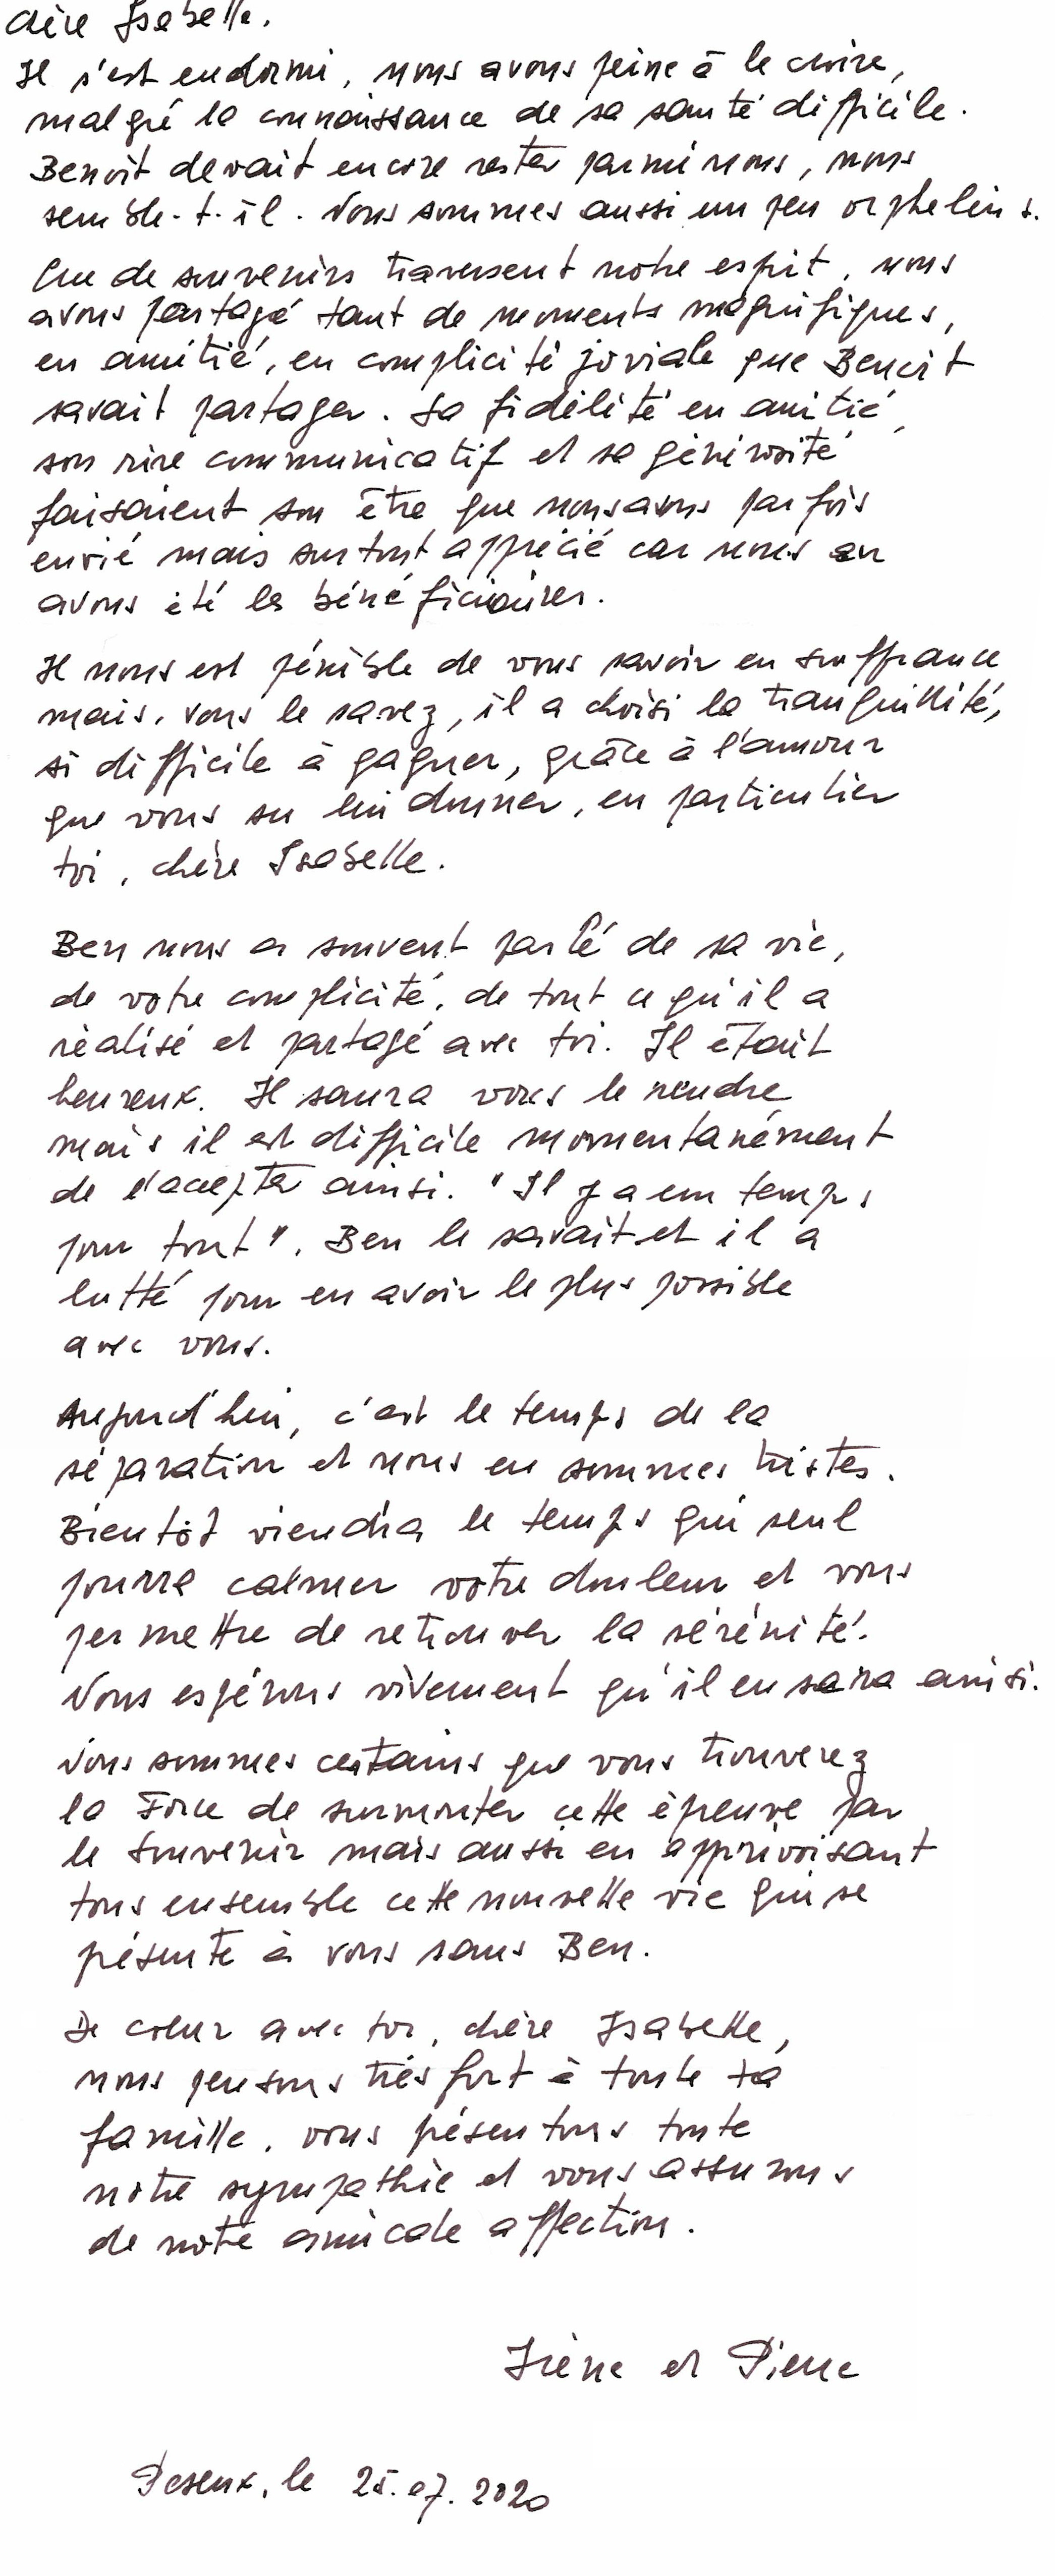 chère Isabelle.
Il s'est endormi, nous avons peine à le croire,
malgré la connaissance de sa santé difficile.
Benoît devait encore rester parmi nous, nous
semble-t-il. Nous sommes aussi un peu orphelins.
Que de souvenirs traversent notre esprit, nous
avons partagé tant de moments magnifiques,
en amitié, en complicité joviale que Benoît
savait partager. Sa fidélité en amitié,
son rire communicatif et sa générosité
faisaient son être que nous avons parfois
envié mais surtout apprécié car nous en
avons été les bénéficiaires.
Il nous est pénible de vous savoir en souffrance
mais, vous le savez, il a choisi la tranquillité,
si difficile à gagner, grâce à l'amour
que vous su lui donner, en particulier
toi, chère Isabelle.
Ben nous a souvent parlé de sa vie,
de votre complicité, de tout ce qu'il a
réalisé et partagé avec toi. Il était
heureux. Il saura vous le rendre
mais il est difficile momentanément
de l'accepter ainsi. "Il y a un temps
pour tout". Ben le savait et il a
lutté pour en avoir le plus possible
avec vous.
Aujourd'hui, c'est le temps de la
séparation et nous en sommes tristes.
Bientôt viendra le temps qui seul
pourra calmer votre douleur et vous
permettre de retrouver la sérénité.
Nous espérons vivement qu'il en sera ainsi.
Nous sommes certains que vous trouverez
la Force de surmonter cette épreuve par
le souvenir mais aussi en apprivoisant
tous ensemble cette nouvelle vie qui se
présente à vous sans Ben.
De coeur avec toi, chère Isabelle,
nous pensons très fort à toute ta
famille, vous présentons toute
notre sympathie et vous assurons
de notre amicale affection.
Irène et Pierre
Peseux, le 25.07.2020